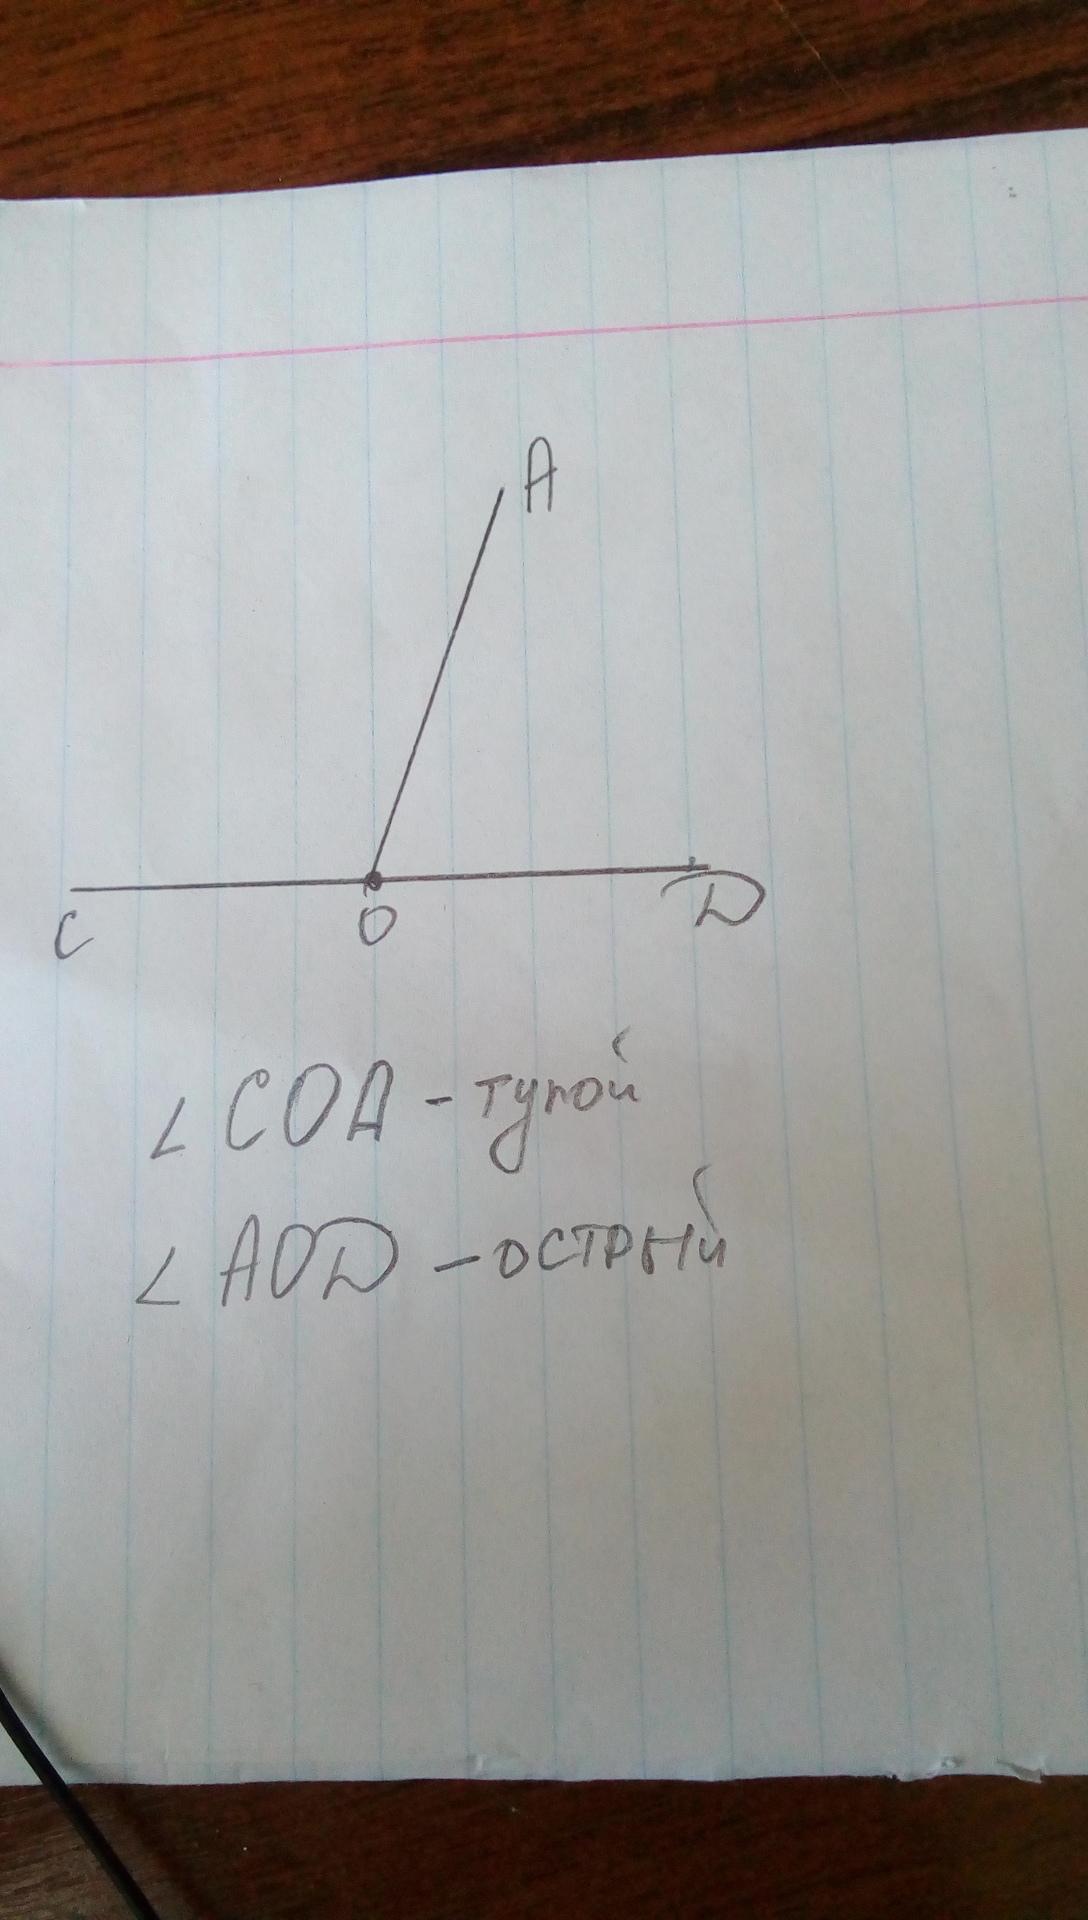 A
C O D
∠ COA - тупой
∠ AOD - острый